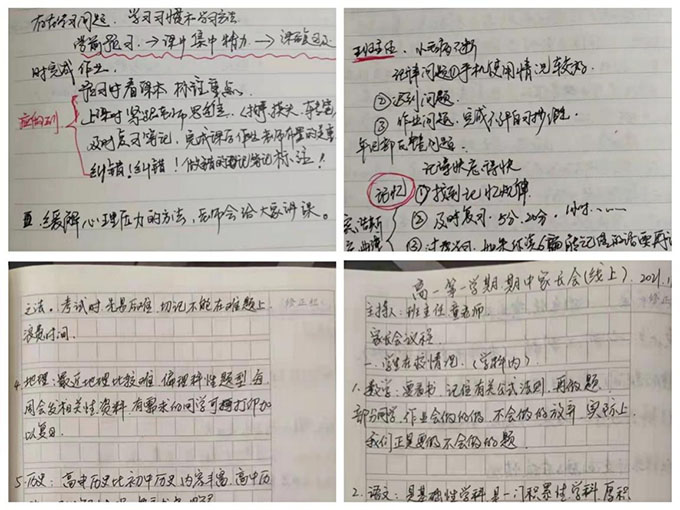 存在学习问题, 学习习惯不学习方法
学前预习→课中集中精力→课后
时完成作业.
预习时看课本 标注重点.
上课时紧跟老师思维
及时复习笔记, 完成课后作业
纠错!纠错!做错的题记笔记标注!
五.缓解心理压力的方法, 老师会给大家讲课。
班主任.
纪律问题①手机使用情况较好.
②迟到问题.
③作业问题.完成不好
年已都在整问题.
记得快忘得快
记忆 ①找到记忆规律
②及时复习.5分.20分, 1小时……
③
方法。考试时先易后难 切记不能在难题上
浪费时间.
4.地理:最近地理比较难 偏理科性题型 每
周会发相关性资料.有需求的同学可打印加
以复习.
5.历史:高中历史比初中历史内容丰富.高中历
高一第一学期期中家长会(线上). 2021.1
主持人:班主任董老师
家长会议程
一、学生在校情况.(学科内)
1.数学:要看书 记住有关公式法则.再做题
部分同学.作业会做的做 不会做的放弃 实际上
我们正是要做不会做的题.
2.语文:具基础性学科 是一门积累性学科.厚积